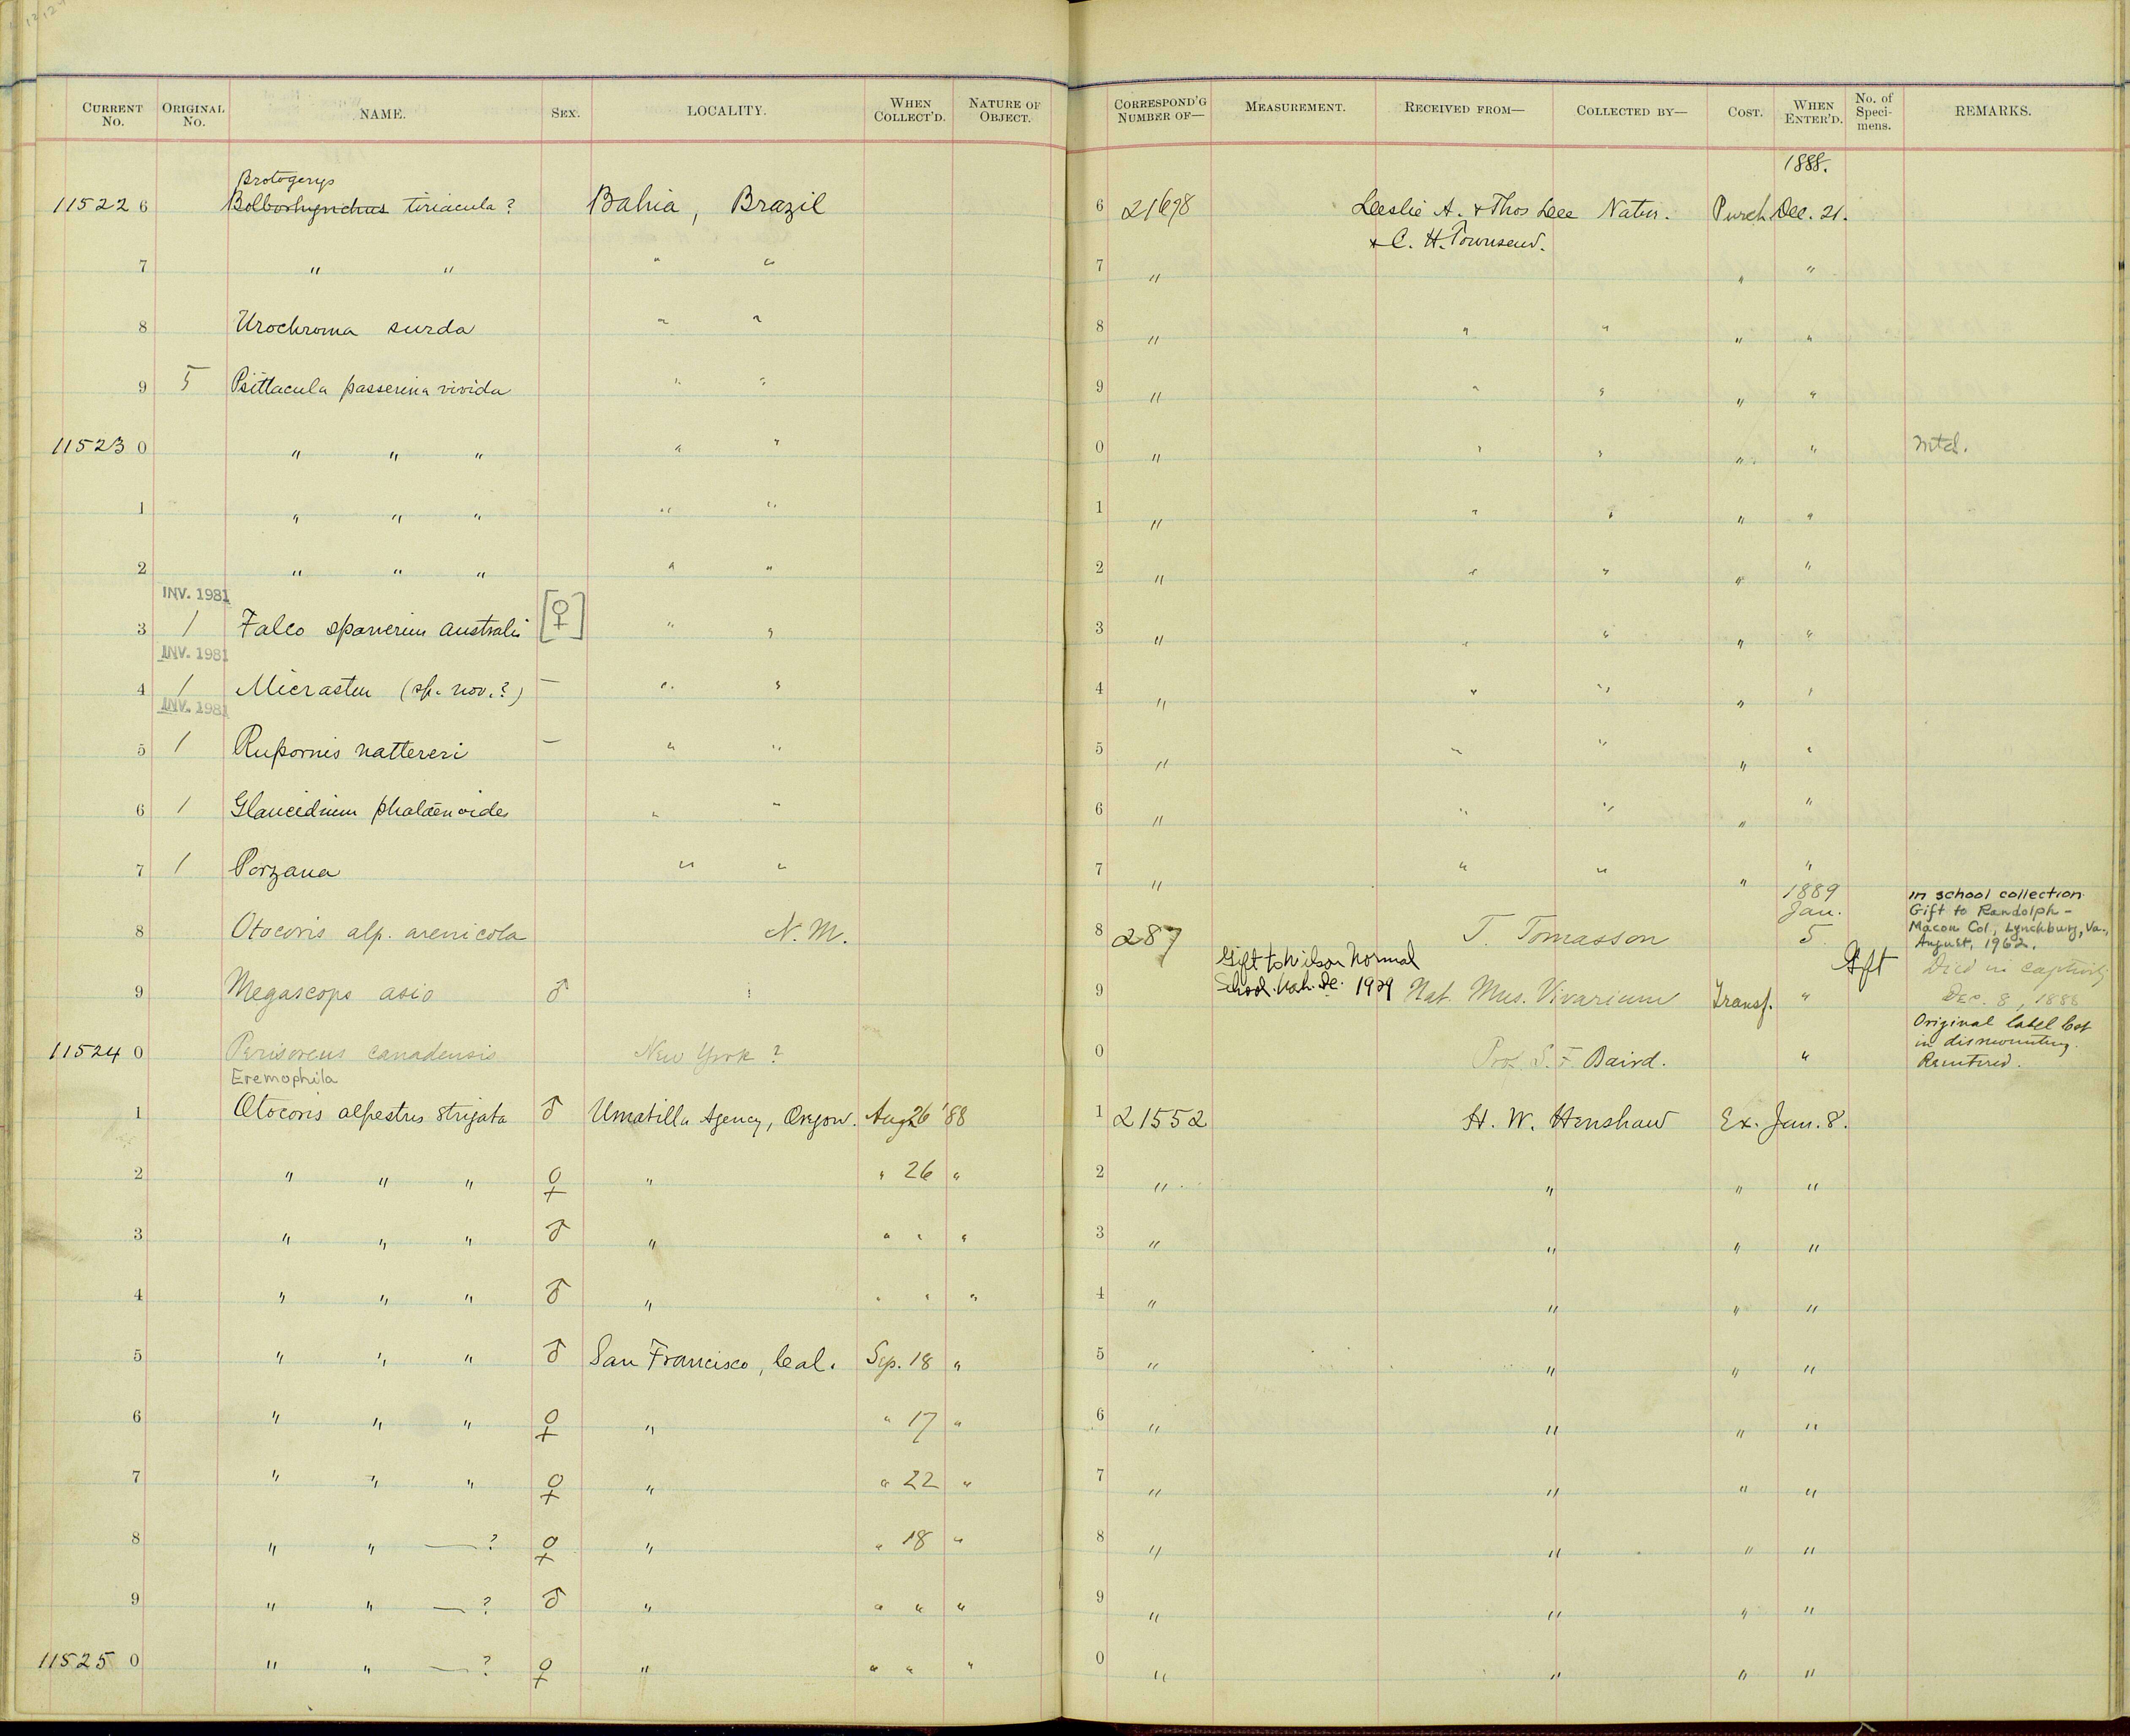 CURRENT No. ORIGINAL No. NAME. SEX. LOCALITY. WHEN COLLECT'D. NATURE OF OBJECT. CORRESPOND'G NUMBER OF— MEASUREMENT. RECEIVED FROM— COLLECTED BY— COST. WHEN ENTER'D. No. of Specimens. REMARKS.
1888.
Brotogerys
11522 6 Bolborhynchus tiriacula? Bahia, Brazil 6 21678 Leeslie A. & Thos Lee Natur. Purch. Dec. 21.
& C. H. Townsend.
7 " " " " 7 " " "
8 Urochroma surda " " 8 " " " " "
9 5 Psittacula passerina vivida " " 9 " " " " "
11523 0 " " " " " 0 " " " " " mtd.
1 " " " " " 1 " " " " "
2 " " " " " 2 " " " " "
INV. 1981
3 1 Falco sparverius australis [♀] " " 3 " " " " "
INV. 1981
4 1 Micrastur (sp. nov.?) — " " 4 " " " " "
INV. 1981
5 1 Rupornis nattereri — " " 5 " " " " "
6 1 Glaucidium phalaenoides " " 6 " " " " "
7 1 Porzana " " 7 " " " " "
8 Otocoris alp. arenicola N. M. 8 287 T. Tomasson 1889 Jan. 5. In school collection
Gift to Randolph-
Macon Col., Lynchburg, Va.,
August, 1962.
Gift to Wilson Normal
School. Wash. DC. 1929
9 Megascops asio ♂ 9 Nat. Mus. Vivarium Transf. " Gft Died in captivity
Dec. 8, 1888
11524 0 Perisoreus canadensis New York? 0 Prof. S. F. Baird. " Original label lost
in dismounting.
Remitired.
Eremophila
1 Otocoris alpestris strigata ♂ Umatilla Agency, Oregon. Aug 26 '88 1 21552 H. W. Henshaw Ex. Jan. 8.
2 " " " ♀ " " 26 " 2 " " " "
3 " " " ♂ " " " " 3 " " " "
4 " " " ♂ " " " " 4 " " " "
5 " " " ♂ San Francisco, Cal. Sep. 18 " 5 " " " "
6 " " " ♀ " " 17 " 6 " " " "
7 " " " ♀ " " 22 " 7 " " " "
8 " " —? ♀ " " 18 " 8 " " " "
9 " " —? ♂ " " " " 9 " " " "
11525 0 " " —? ♀ " " " " 0 " " " "